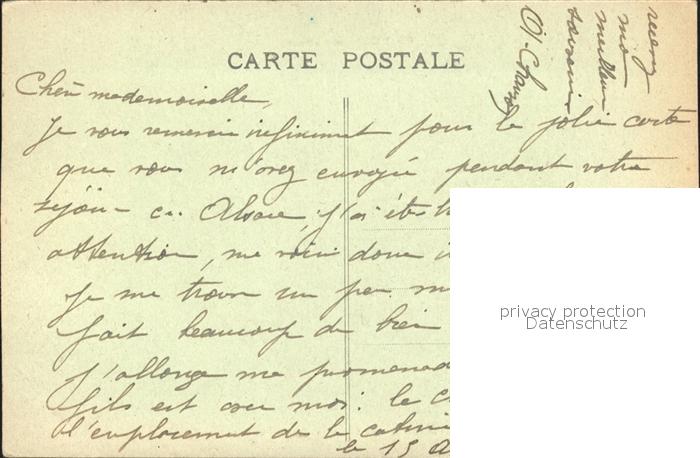 CARTE POSTALE
Chère mademoiselle,
Je vous remercie infiniment pour la jolie carte
que vous m'avez envoyée pendant votre
séjour en Alsace, j'ai été
attention, me voici donc
Je me trouve un peu
fait beaucoup de bien
J'allonge me promenad
fils est avec moi: le
l'emplacement de la
le 15 A
recevez
mon
meilleur
souvenir
privacy protection
Datenschutz